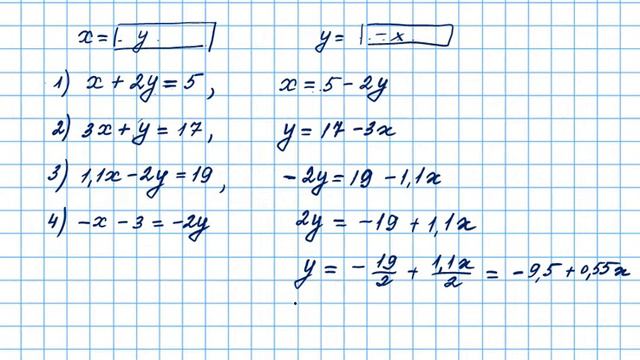 x = . y .   y = - x
1) x + 2y = 5,   x = 5 - 2y
2) 3x + y = 17,   y = 17 - 3x
3) 1,1x - 2y = 19,   -2y = 19 - 1,1x
4) -x - 3 = -2y   2y = -19 + 1,1x
y = - 19/2 + 1,1x/2 = -9,5 + 0,55x